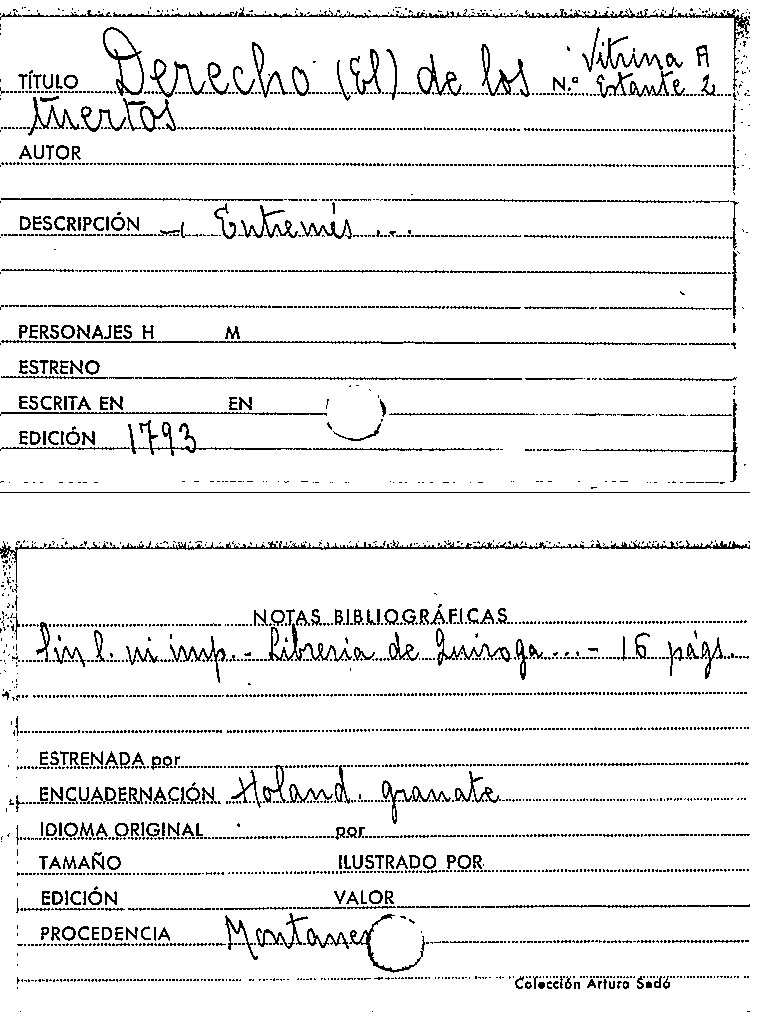 TÍTULO Derecho (El) de los N.º Vitrina A Estante 2
tuertos
AUTOR
DESCRIPCIÓN - Entremés ...
PERSONAJES H M
ESTRENO
ESCRITA EN EN
EDICIÓN 1793
NOTAS BIBLIOGRÁFICAS
Sin l. ni imp. - Libreria de Quiroga ... - 16 págs.
ESTRENADA por
ENCUADERNACIÓN Holand. granate
IDIOMA ORIGINAL por
TAMAÑO ILUSTRADO POR
EDICIÓN VALOR
PROCEDENCIA
Colección Arturo Sedó